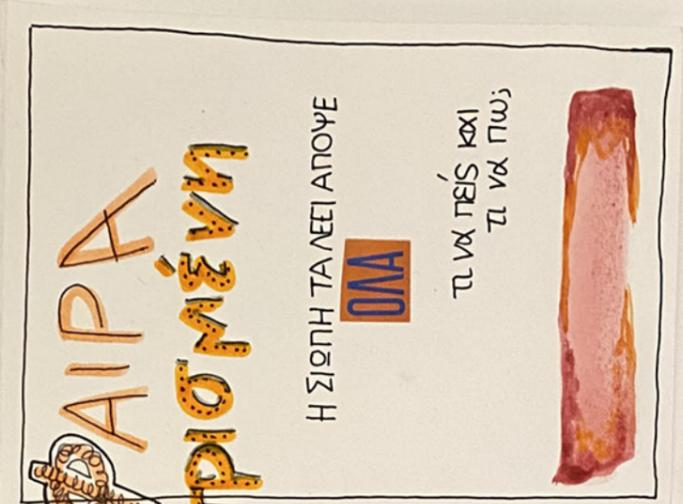 ΦΑΙΡΑ
ρισμένη
Η ΣΙΩΠΗ ΤΑ ΛΕΕΙ ΑΠΟΨΕ
ΟΛΑ
τι να πείς και
τι να πω;